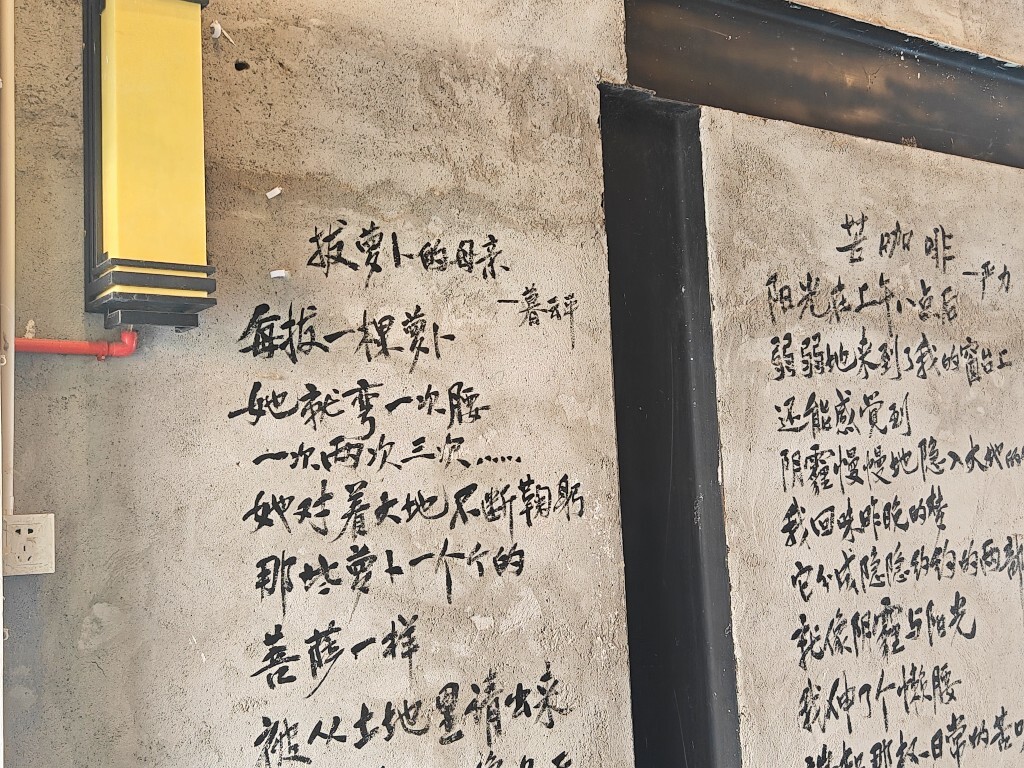 拔萝卜的母亲
—暮云平
每拔一棵萝卜
她就弯一次腰
一次两次三次……
她对着大地不断鞠躬
那些萝卜一个个的
菩萨一样
被从土地里请出来
苦咖啡
—严力
阳光在上午八点后
弱弱地来到了我的窗台上
还能感觉到
阴霾慢慢地隐入大地的
我回味昨晚的梦
它分成隐隐约约的两部
就像阴霾与阳光
我伸了个懒腰
那杯日常的苦